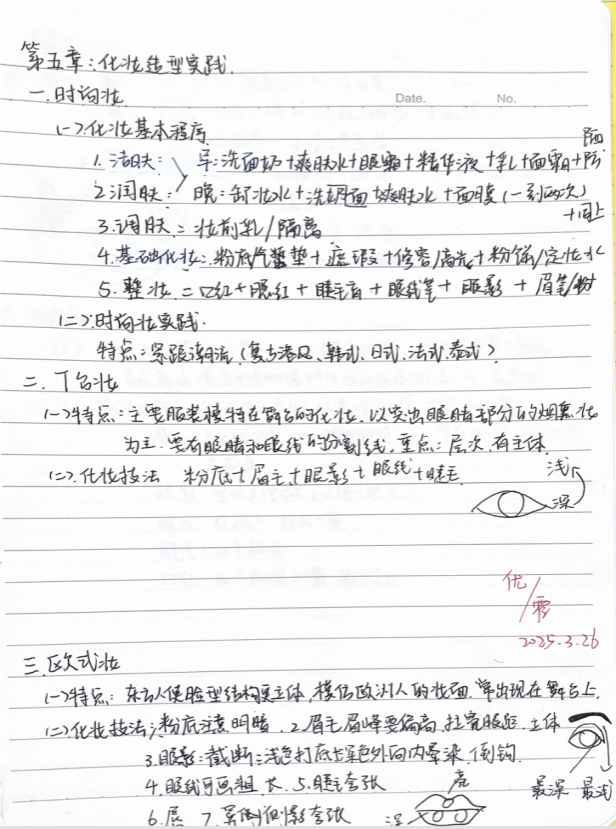 第五章：化妆造型实践.
Date. No.
一.时尚妆
(一)化妆基本程序
1.洁肤： 早：洗面奶+爽肤水+眼霜+精华液+乳+面霜+防晒
2.润肤： 晚：卸妆水+洗面+爽肤水+面膜(一到两次)+同上
3.调肤：妆前乳/隔离
4.基础化妆：粉底气垫+遮瑕+修容/高光+粉饼/定妆水
5.整妆：口红+眼红+睫毛膏+眼线笔+眼影+眉笔/粉
(二).时尚妆实践.
特点：紧跟潮流(复古港风、韩式、日式、法式、泰式)
二、T台妆
(一)特点：主要服装模特在舞台的化妆.以突出眼睛部分的烟熏妆
为主.要有眼睛和眼线的分割线.重点：层次.有主体.
(二).化妆技法 粉底+眉毛+眼影+眼线+睫毛
浅
深
优/零
2025.3.26
三.欧式妆
(一)特点：东方人使脸型结构更立体,模仿欧洲人的妆面.常出现在舞台上.
(二)化妆技法：粉底注意明暗.2.眉毛眉峰要偏高.拉宽眼距.立体
3.眼影：截断：浅色打底+深色外向内晕染.倒钩.
4.眼线可画粗.长.5.睫毛夸张
最深 最浅
亮
6.唇 7.鼻侧影夸张
深